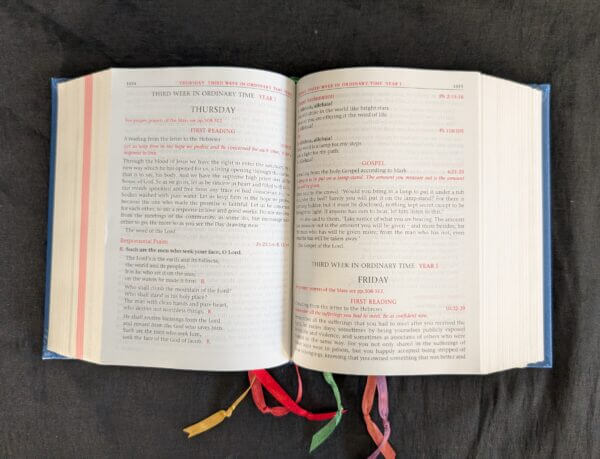 1054 THURSDAY, THIRD WEEK IN ORDINARY TIME, YEAR I
THIRD WEEK IN ORDINARY TIME YEAR I
THURSDAY
For proper prayers of the Mass see pp.508-512.
FIRST READING
A reading from the letter to the Hebrews
Let us keep firm in the hope we profess and be concerned for each other, to
response to love.
Through the blood of Jesus we have the right to enter the sanctuary,
new way which he has opened for us, a living opening through the
that is to say, his body. And we have the supreme high priest over all the
house of God. So as we go in, let us be sincere in heart and filled with
our minds sprinkled and free from any trace of bad conscience and our
bodies washed with pure water. Let us keep firm in the hope we profess
because the one who made the promise is faithful. Let us be concerned
for each other, to stir a response in love and good works. Do not stay away
from the meetings of the community, as some do, but encourage each
other to go; the more so as you see the Day drawing near.
The word of the Lord.
Responsorial Psalm
R. Such are the men who seek your face, O Lord.
The Lord's is the earth and its fullness,
the world and its peoples.
It is he who set it on the seas;
on the waters he made it firm. R
Who shall climb the mountain of the Lord?
Who shall stand in his holy place?
The man with clean hands and pure heart,
who desires not worthless things. R
He shall receive blessings from the Lord
and reward from the God who saves him.
Such are the men who seek him,
seek the face of the God of Jacob. R
THIRD WEEK IN ORDINARY TIME, YEAR I 1055
Acclamation Ph 2:15-16
alleluia!
shine in the world like bright stars
you are offering it the word of life.
Alleluia!
alleluia!
word is a lamp for my steps
a light for my path.
Alleluia!
GOSPEL
reading from the holy Gospel according to Mark 4:21-25
is to be put on a lamp-stand. The amount you measure out is the amount
said to the crowd, 'Would you bring in a lamp to put it under a tub
the bed? Surely you will put it on the lamp-stand? For there is
hidden but it must be disclosed, nothing kept secret except to
light. If anyone has ears to hear, let him listen to this.'
He also said to them, 'Take notice of what you are hearing. The amount
measure out is the amount you will be given – and more besides; for
man who has will be given more; from the man who has not, even
he has will be taken away.'
The Gospel of the Lord.
THIRD WEEK IN ORDINARY TIME YEAR I
FRIDAY
prayers of the Mass see pp.508-512.
FIRST READING
reading from the letter to the Hebrews 10:32-39
all the sufferings that you had to meet. Be as confident now.
the sufferings that you had to meet after you received the
in earlier days; sometimes by being yourselves publicly exposed
and violence, and sometimes as associates of others who were
in the same way. For you not only shared in the sufferings of
who were in prison, but you happily accepted being stripped of
belongings, knowing that you owned something that was better and